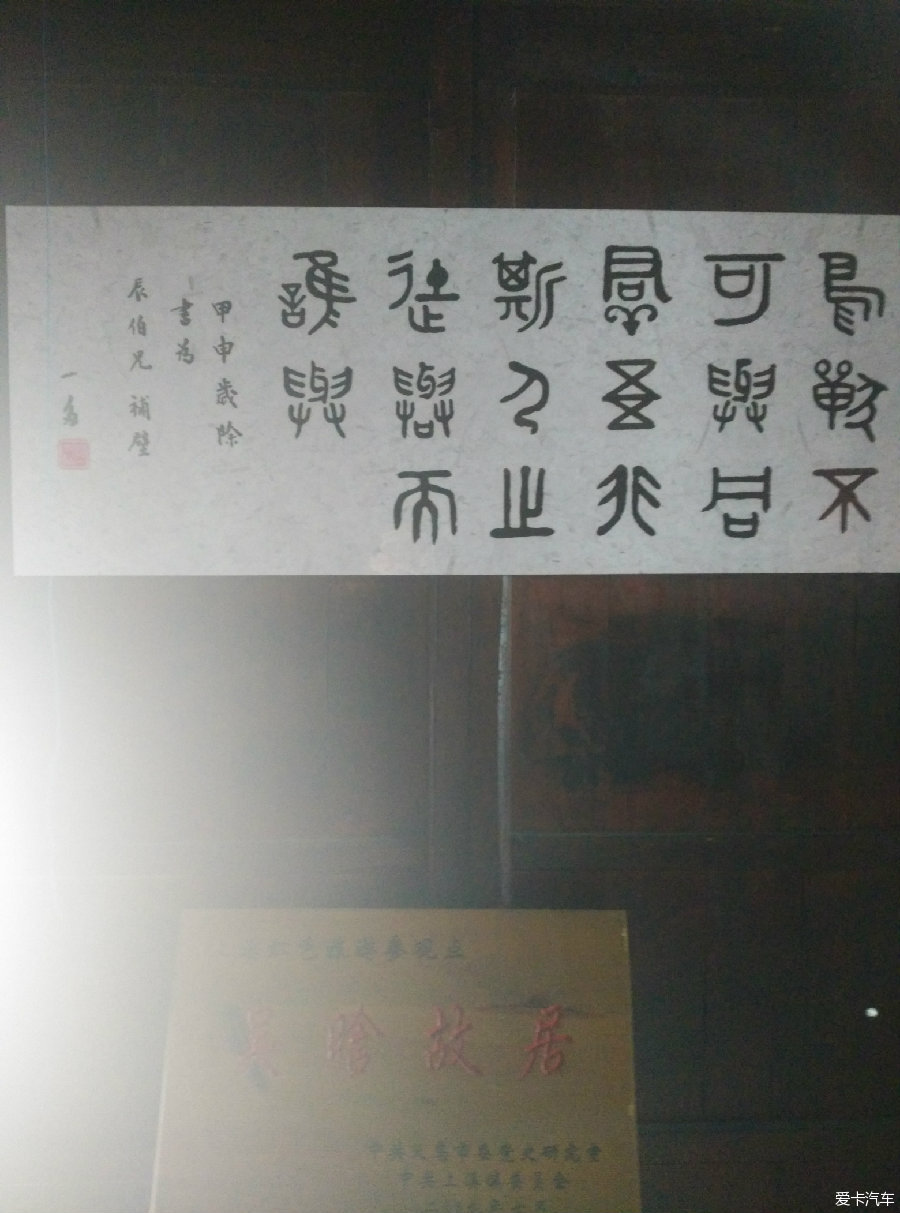 鳥獸不
可與同
羣吾非
斯人之
徒與而
誰與
甲申歲除
書為
辰伯兄補壁
一多
红色旅游参观点
吴晗故居
中共义乌市委党史研究室
中共上溪镇委员会
爱卡汽车